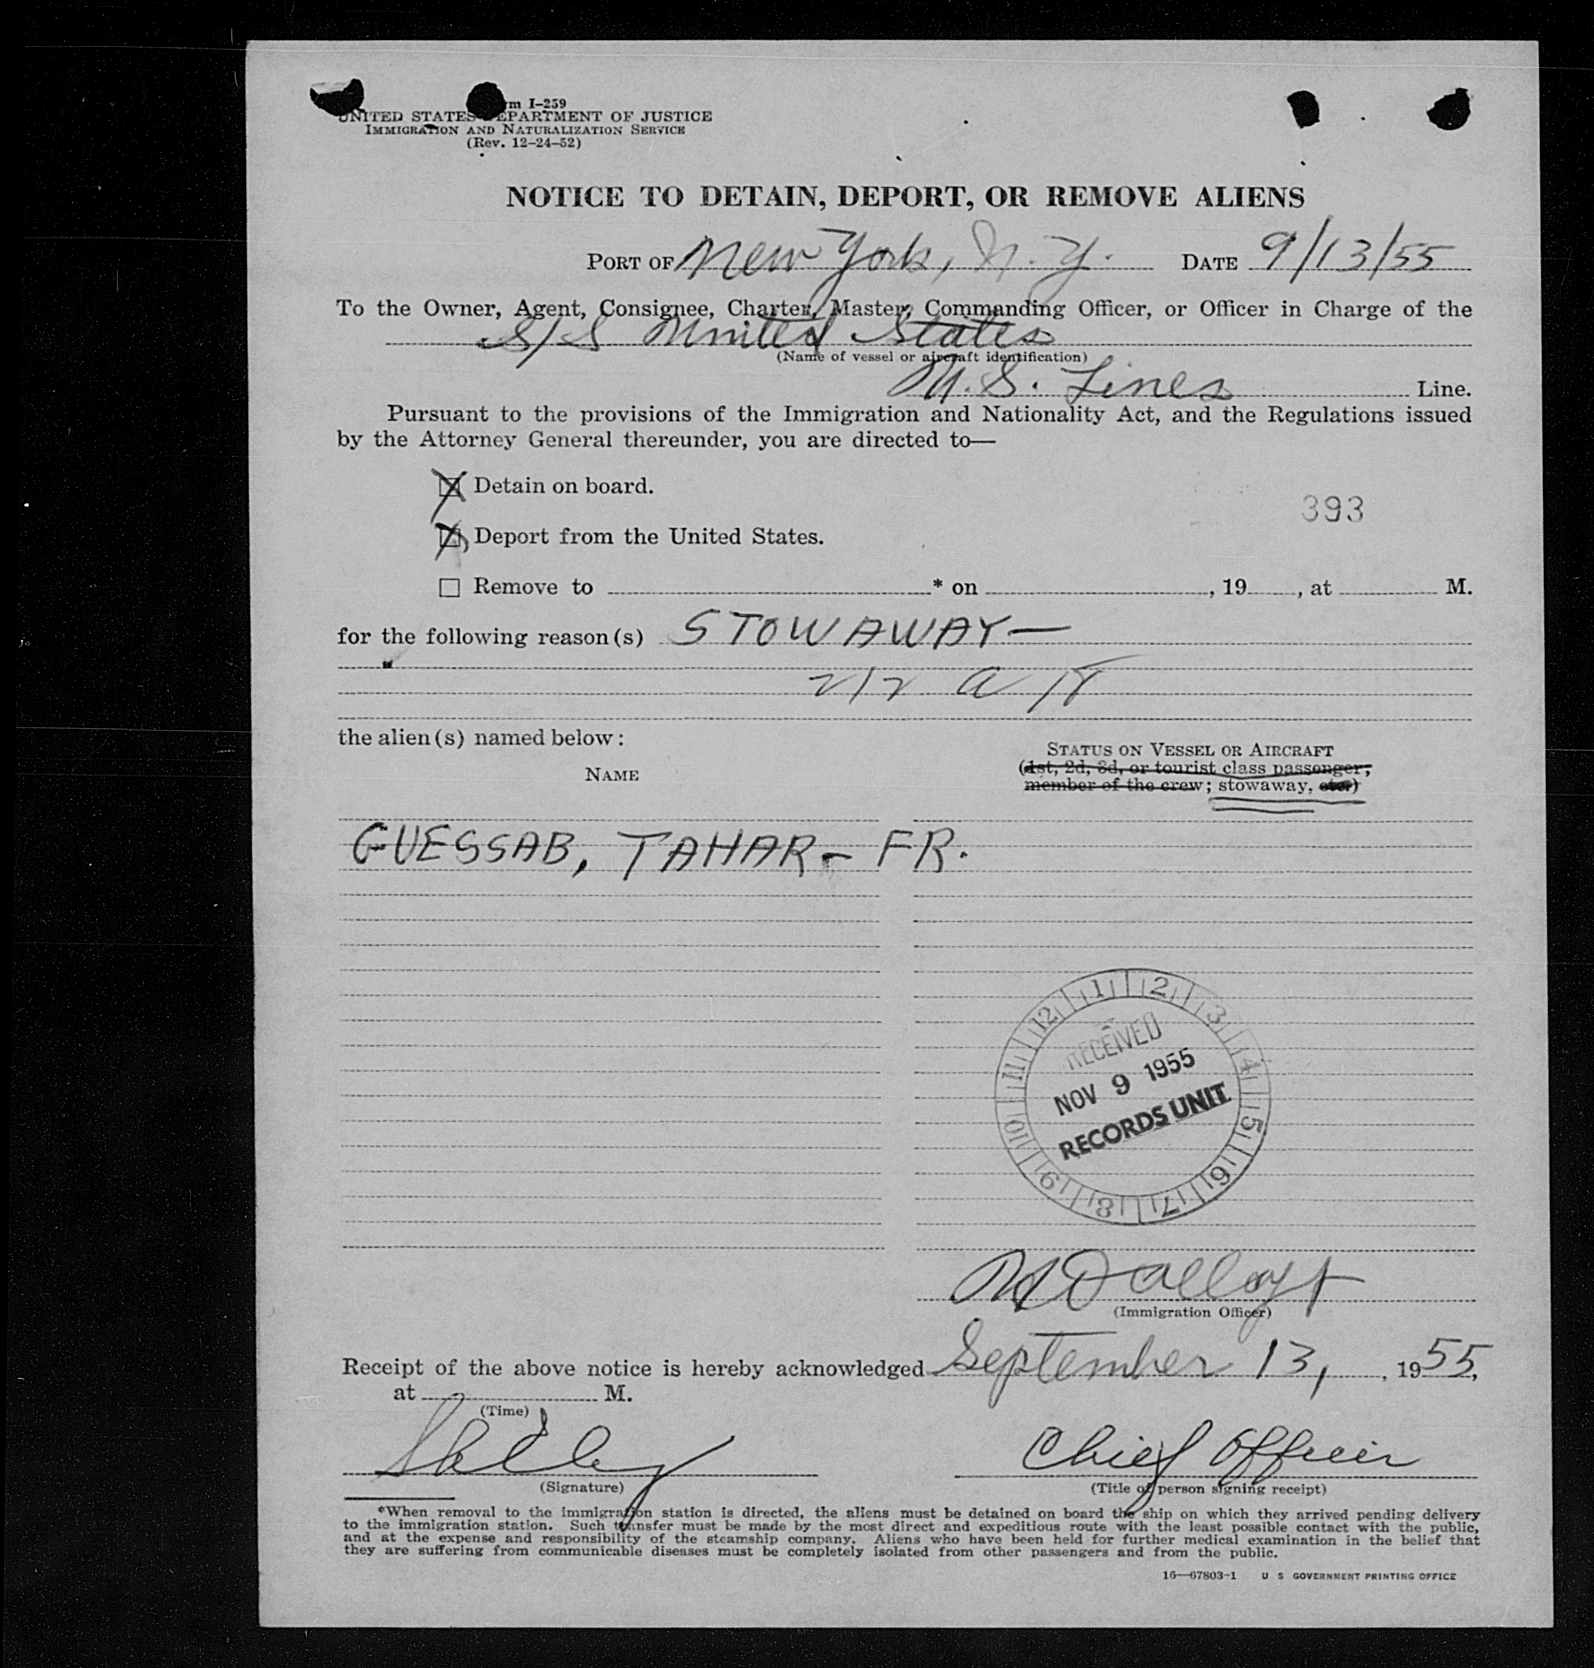 Form I-259
UNITED STATES DEPARTMENT OF JUSTICE
IMMIGRATION AND NATURALIZATION SERVICE
(Rev. 12-24-52)
NOTICE TO DETAIN, DEPORT, OR REMOVE ALIENS
PORT OF New York, N.Y. DATE 9/13/55
To the Owner, Agent, Consignee, Charter, Master, Commanding Officer, or Officer in Charge of the
S/S United States
(Name of vessel or aircraft identification)
U.S. Lines Line.
Pursuant to the provisions of the Immigration and Nationality Act, and the Regulations issued
by the Attorney General thereunder, you are directed to—
Detain on board.
393
Deport from the United States.
Remove to * on , 19 , at M.
for the following reason(s) STOWAWAY—
212 a 18
the alien(s) named below:
STATUS ON VESSEL OR AIRCRAFT
NAME
(1st, 2d, 3d, or tourist class passenger;
member of the crew; stowaway, etc.)
GUESSAB, TAHAR - FR.
12 1 2 3 4 5 6 7 8 9 10 11
RECEIVED
NOV 9 1955
RECORDS UNIT
(Immigration Officer)
Receipt of the above notice is hereby acknowledged September 13, , 1955,
at M.
(Time)
Chief Officer
(Signature) (Title of person signing receipt)
*When removal to the immigration station is directed, the aliens must be detained on board the ship on which they arrived pending delivery
to the immigration station. Such transfer must be made by the most direct and expeditious route with the least possible contact with the public,
and at the expense and responsibility of the steamship company. Aliens who have been held for further medical examination in the belief that
they are suffering from communicable diseases must be completely isolated from other passengers and from the public.
16—67803-1 U S GOVERNMENT PRINTING OFFICE